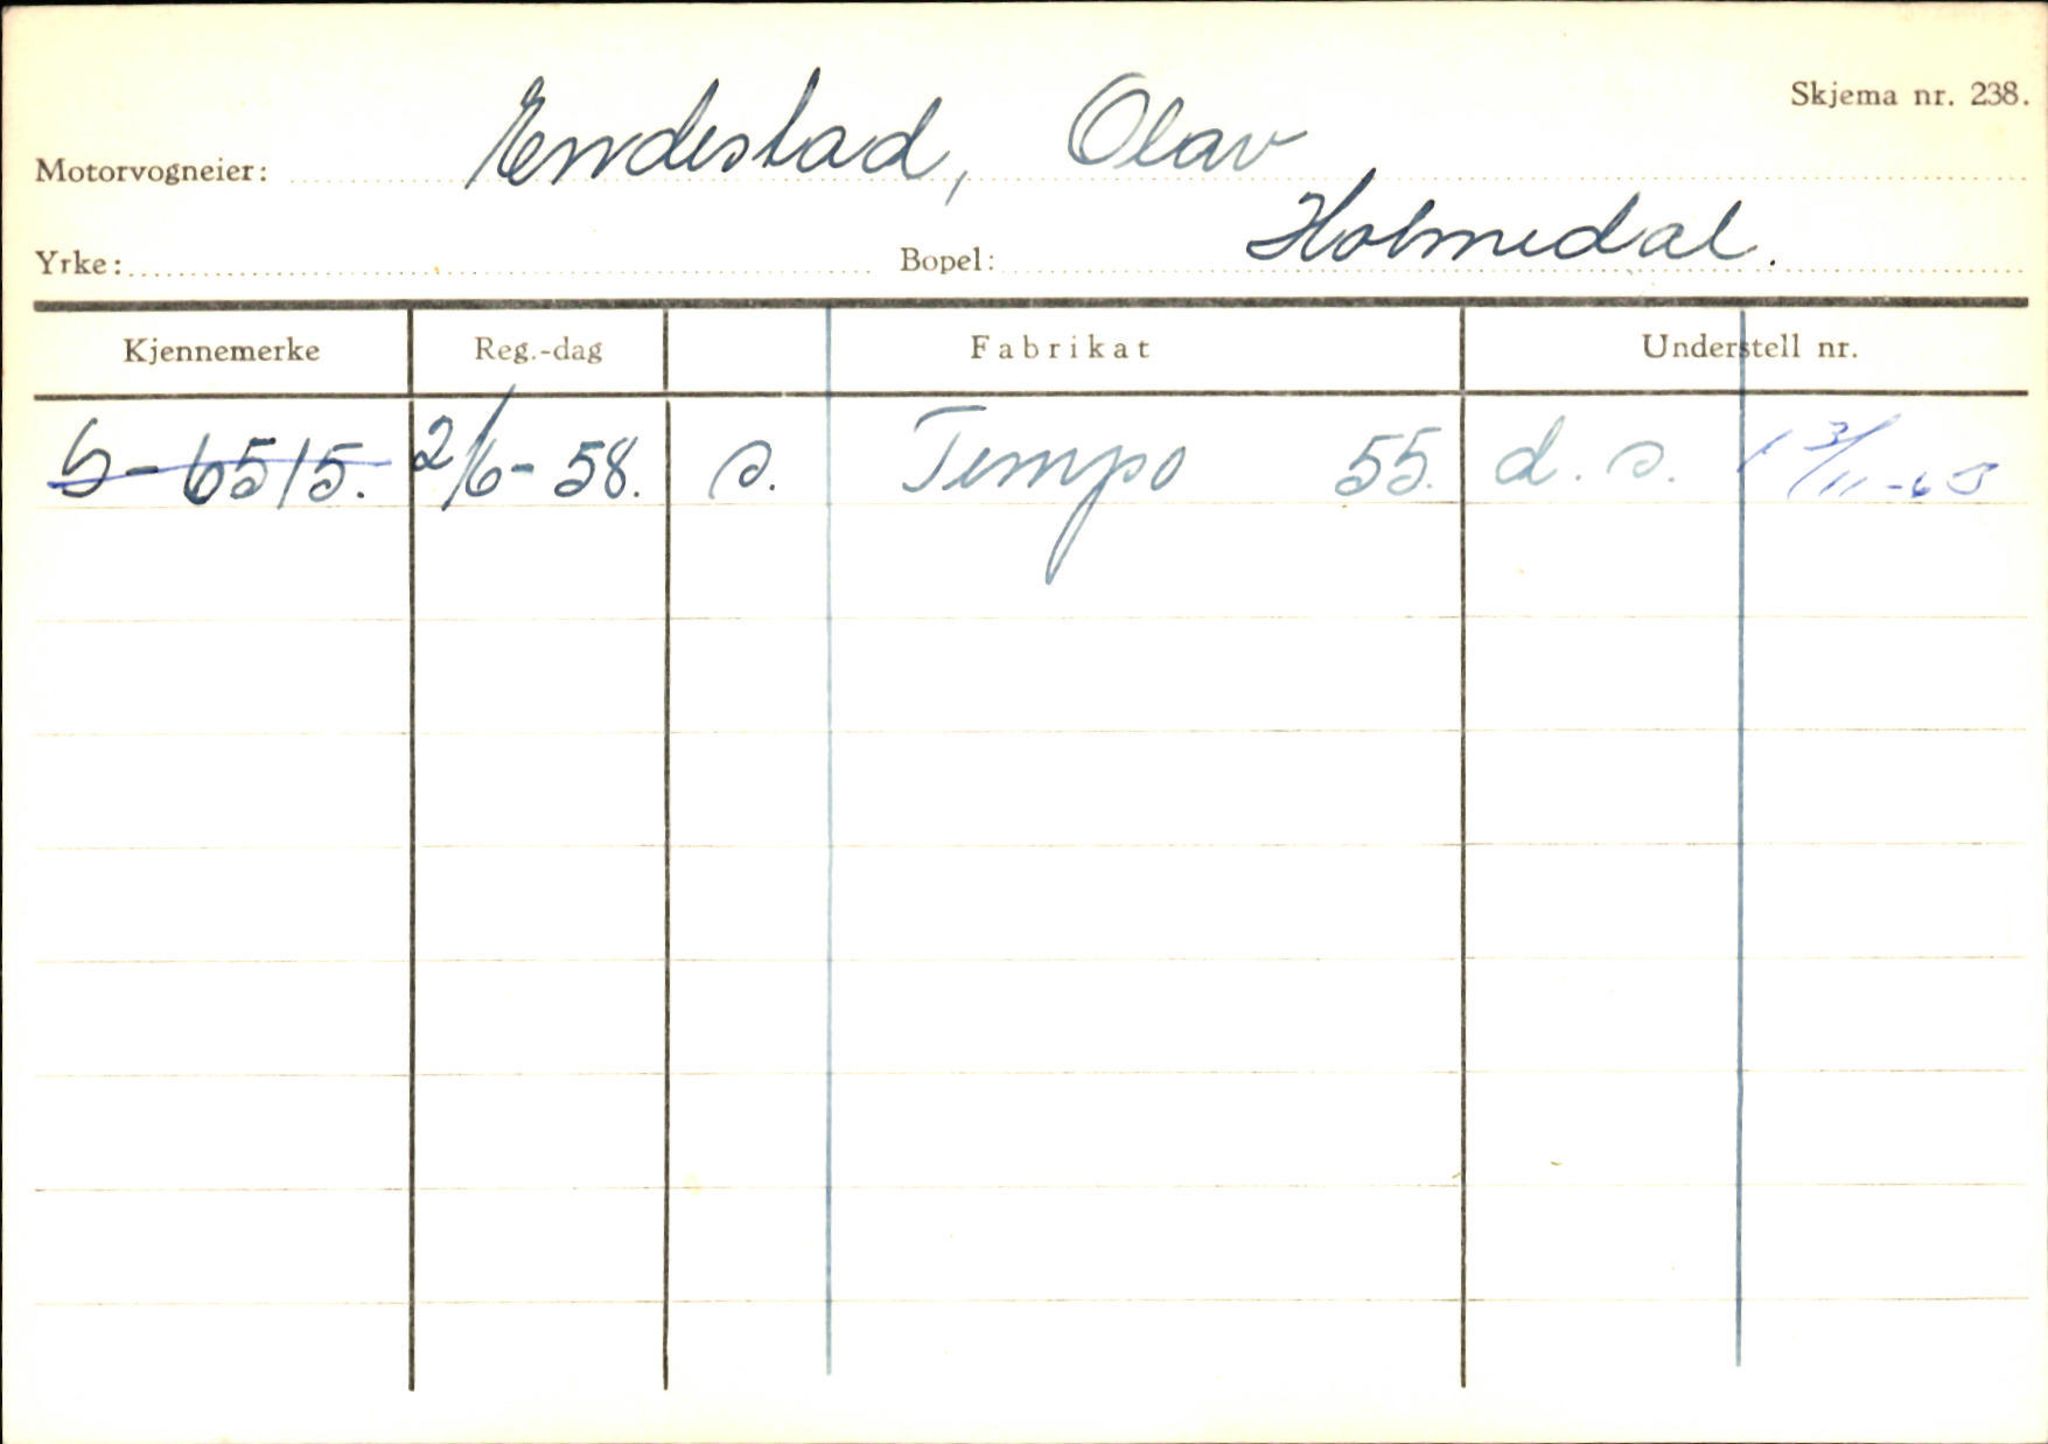 Skjema nr. 238.
Motorvogneier: Endestad, Olav
Yrke: Bopel: Holmedal.
Kjennemerke Reg.-dag Fabrikat Understell nr.
S-6515. 2/6-58. s. Tempo 55. d. s. 3/11-63